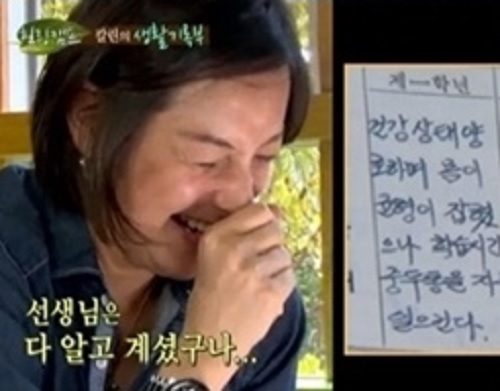 힐링캠프 칼린의 생활기록부
제一학년
건강상태 양
호하며 몸이
균형이 잡혔
으나 학습시간
자
일으킨다.
선생님은
다 알고 계셨구나...